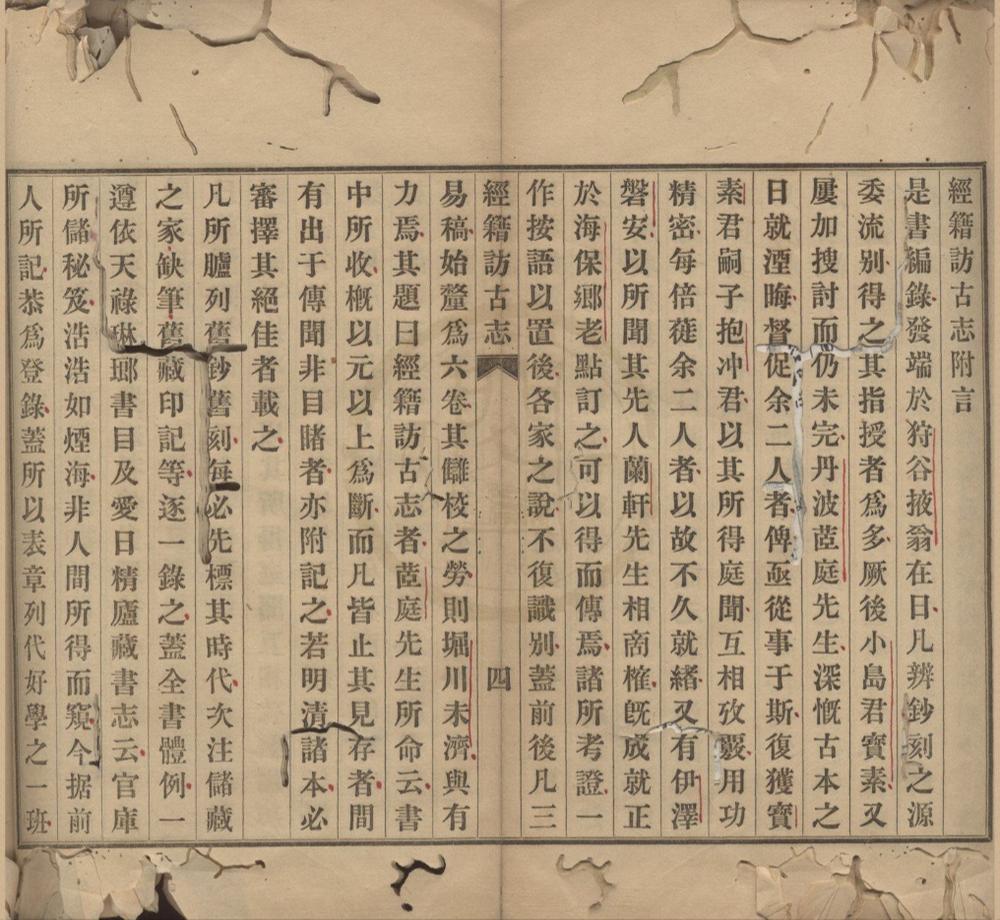 經籍訪古志附言
是書編錄發端於狩谷掖翁在日凡辨鈔刻之源
委流别得之其指授者爲多厥後小島君寶素又
屢加搜討而仍未完丹波茝庭先生深慨古本之
日就湮晦督促余二人者俾亟從事于斯復獲寶
素君嗣子抱冲君以其所得庭聞互相攷覈用功
精密每倍蓰余二人者以故不久就緖又有伊澤
磐安以所聞其先人蘭軒先生相商榷旣成就正
於海保鄉老點訂之可以得而傳焉諸所考證一
作按語以置後各家之說不復識别蓋前後凡三
經籍訪古志 四
易稿始釐爲六卷其讎校之勞則堀川未濟與有
力焉其題曰經籍訪古志者茝庭先生所命云書
中所收槪以元以上爲斷而凡皆止其見存者間
有出于傳聞非目睹者亦附記之若明清諸本必
審擇其絕佳者載之
凡所臚列舊鈔舊刻每必先標其時代次注儲藏
之家缺筆舊藏印記等逐一錄之蓋全書體例一
遵依天祿琳瑯書目及愛日精廬藏書志云官庫
所儲秘笈浩浩如煙海非人間所得而窺今据前
人所記恭爲登錄蓋所以表章列代好學之一班